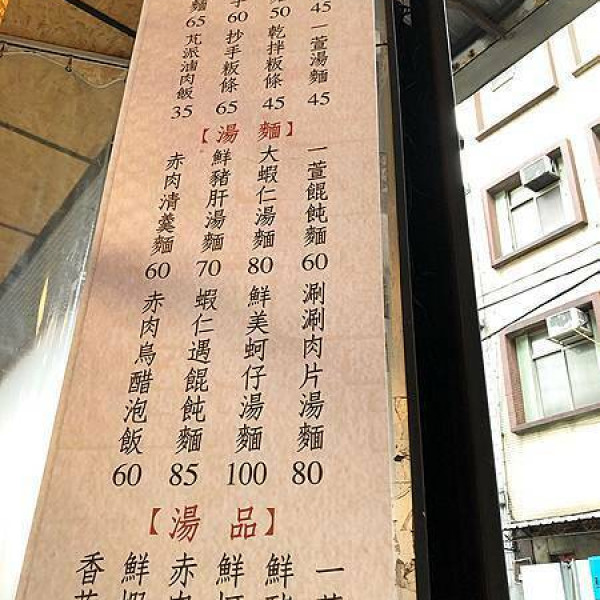 45
50
60
麵 65
一萱湯麵 45
乾拌粄條 45
抄手粄條 65
芃派滷肉飯 35
【湯 麵】
一萱餛飩麵 60
大蝦仁湯麵 80
鮮豬肝湯麵 70
赤肉清羹麵 60
涮涮肉片湯麵 80
鮮美蚵仔湯麵 100
蝦仁遇餛飩麵 85
赤肉烏醋泡飯 60
【湯 品】
一
鮮
鮮
赤肉
鮮蝦
香